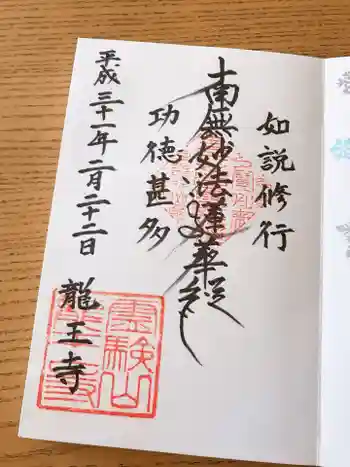 如説修行
南無妙法蓮華経
功徳甚多
平成三十一年二月二十二日
龍王寺
霊験山